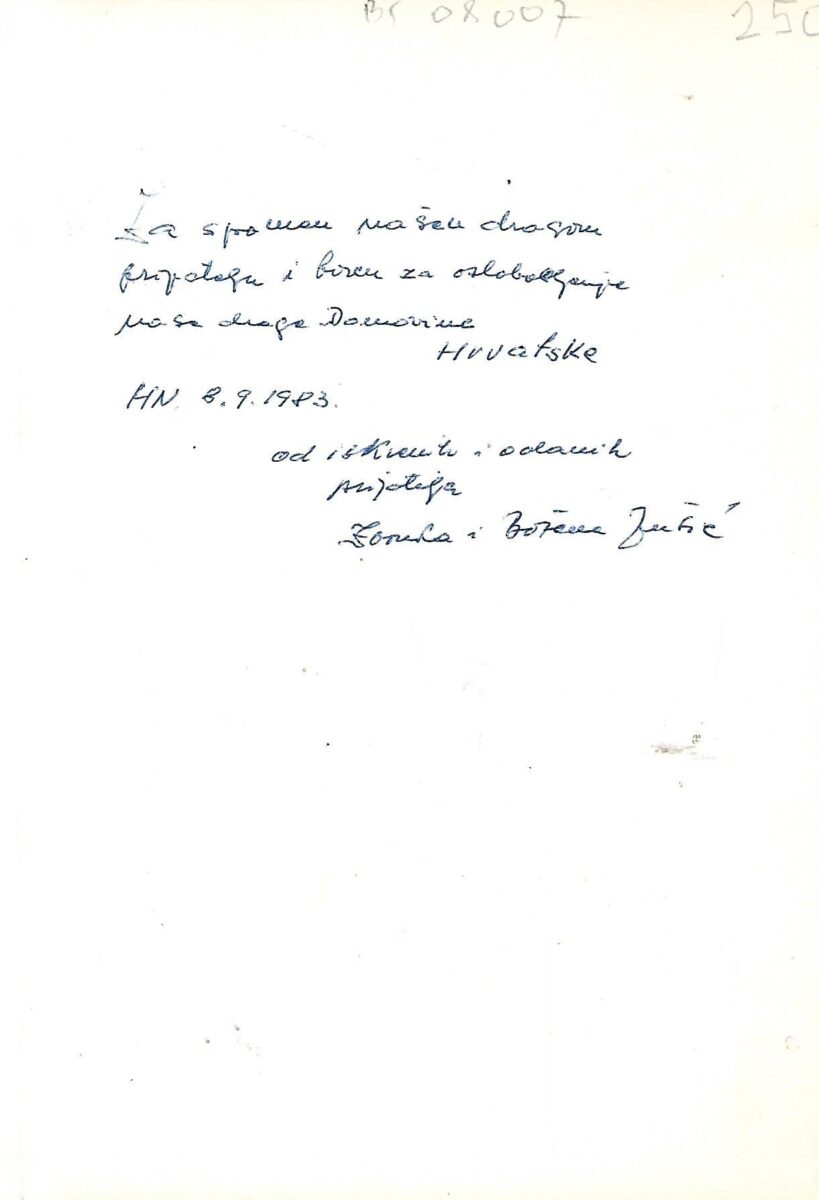 Br 08007 250
Za spomen našem dragom
prijatelju i borcu za oslobodjenje
nase drage Domovine
Hrvatske
HN 8.9.1983.
od iskrenih i odanih
prijatelja
i Božena